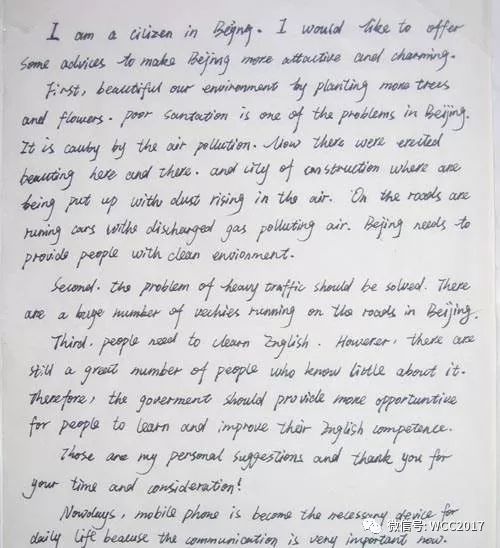 I am a cilizen in Bejng. I would like to offer
some advices to make Beijing more attractive and charming.
First, beautiful our environment by planting more trees
and flowers. poor santation is one of the problems in Beijing.
It is cauby by the air pollution. Now there were erected
beauting here and there. and city of construction where are
being put up with dust rising in the air. On the roads are
runing cars withe discharged gas polluting air. Bejing needs to
provide people with clean enviorment.
Second. the problem of heavy traffic should be solved. There
are a huge number of vechies running on the roads in Beijing.
Third. people need to learn English. However, there are
still a great number of people who know little about it.
Therefore, the goverment should provide more opportuntive
for people to learn and improve their English competence.
Those are my personal suggestions and thank you for
your time and consideration!
Nowdays, mobile phone is become the necessary device for
daily life because the communication is very important now.
微信号: WCC2017